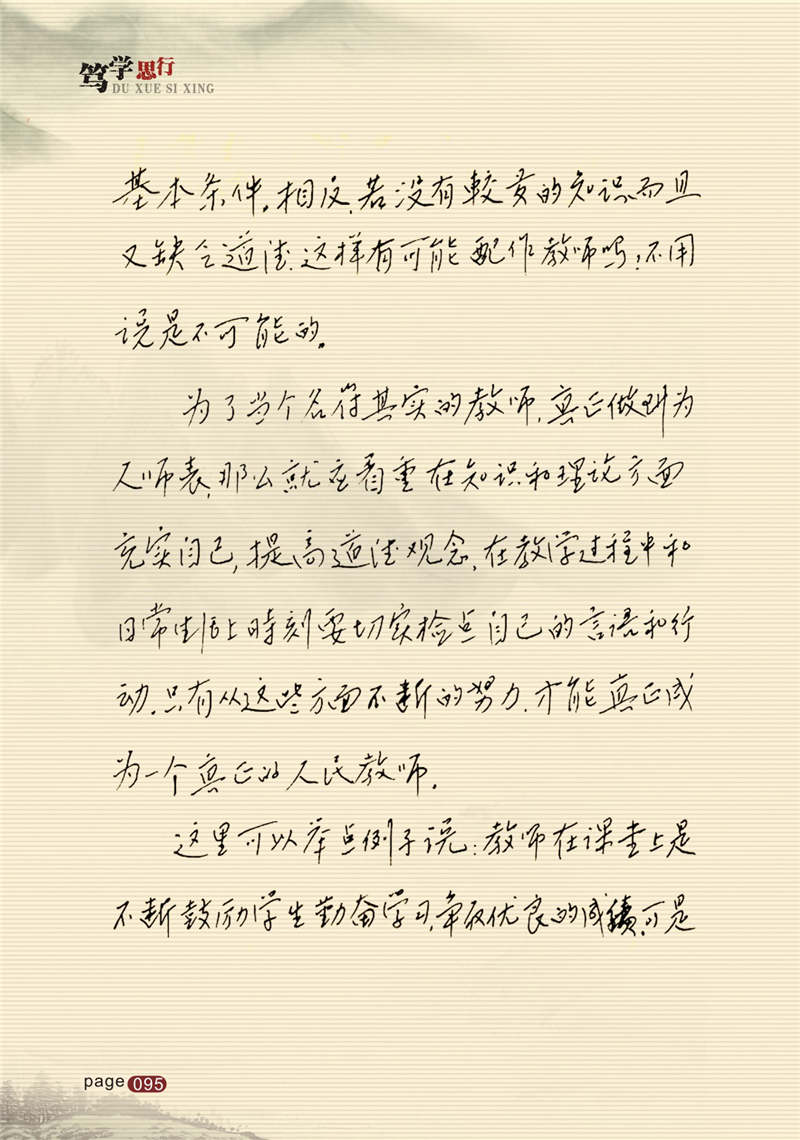 笃学思行
DU XUE SI XING
基本条件。相反,若没有较黄的知识,而且
又缺乏道德,这样有可能配作教师吗?不用
说是不可能的。
为了当个名符其实的教师,真正做到为
人师表,那么就应着重在知识和理论方面
充实自己,提高道德观念,在教学过程中和
日常生活上时刻要切实检点自己的言语和行
动。只有从这些方面不断的努力,才能真正成
为一个真正的人民教师。
这里可以举点例子说:教师在课堂上是
不断鼓励学生勤奋学习,争取优良的成绩,可是
page 095